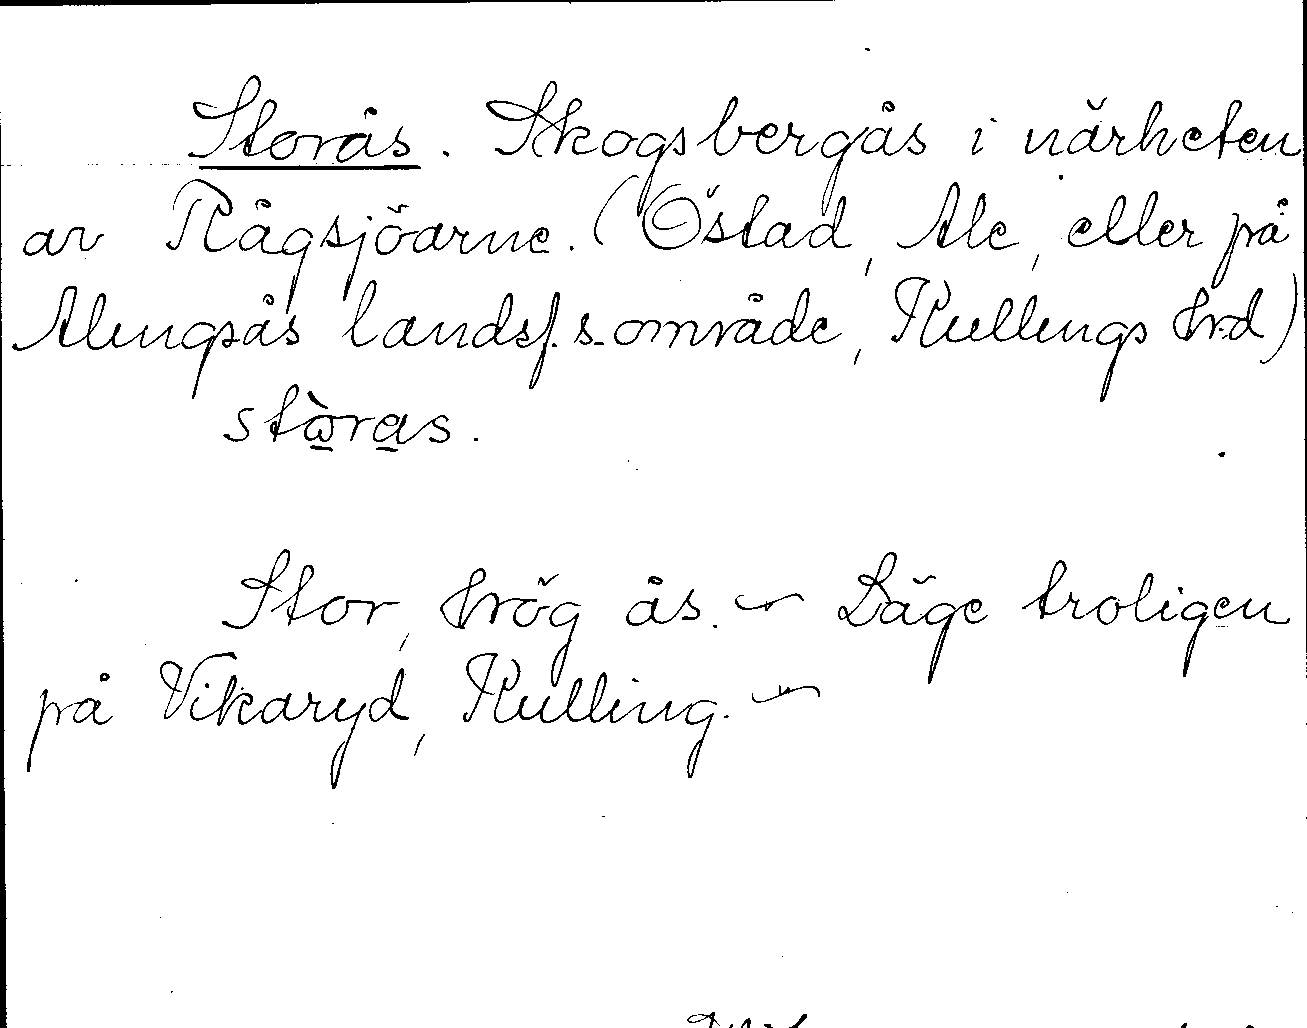 Storås. Skogsbergås i närheten
av Rågsjöarne. (Östad, Ale, eller på
Alingsås landsf.s-område, Kullings hrd)
stòras.
Stor, hög ås. – Läge troligen
på Vikaryd, Kulling. –